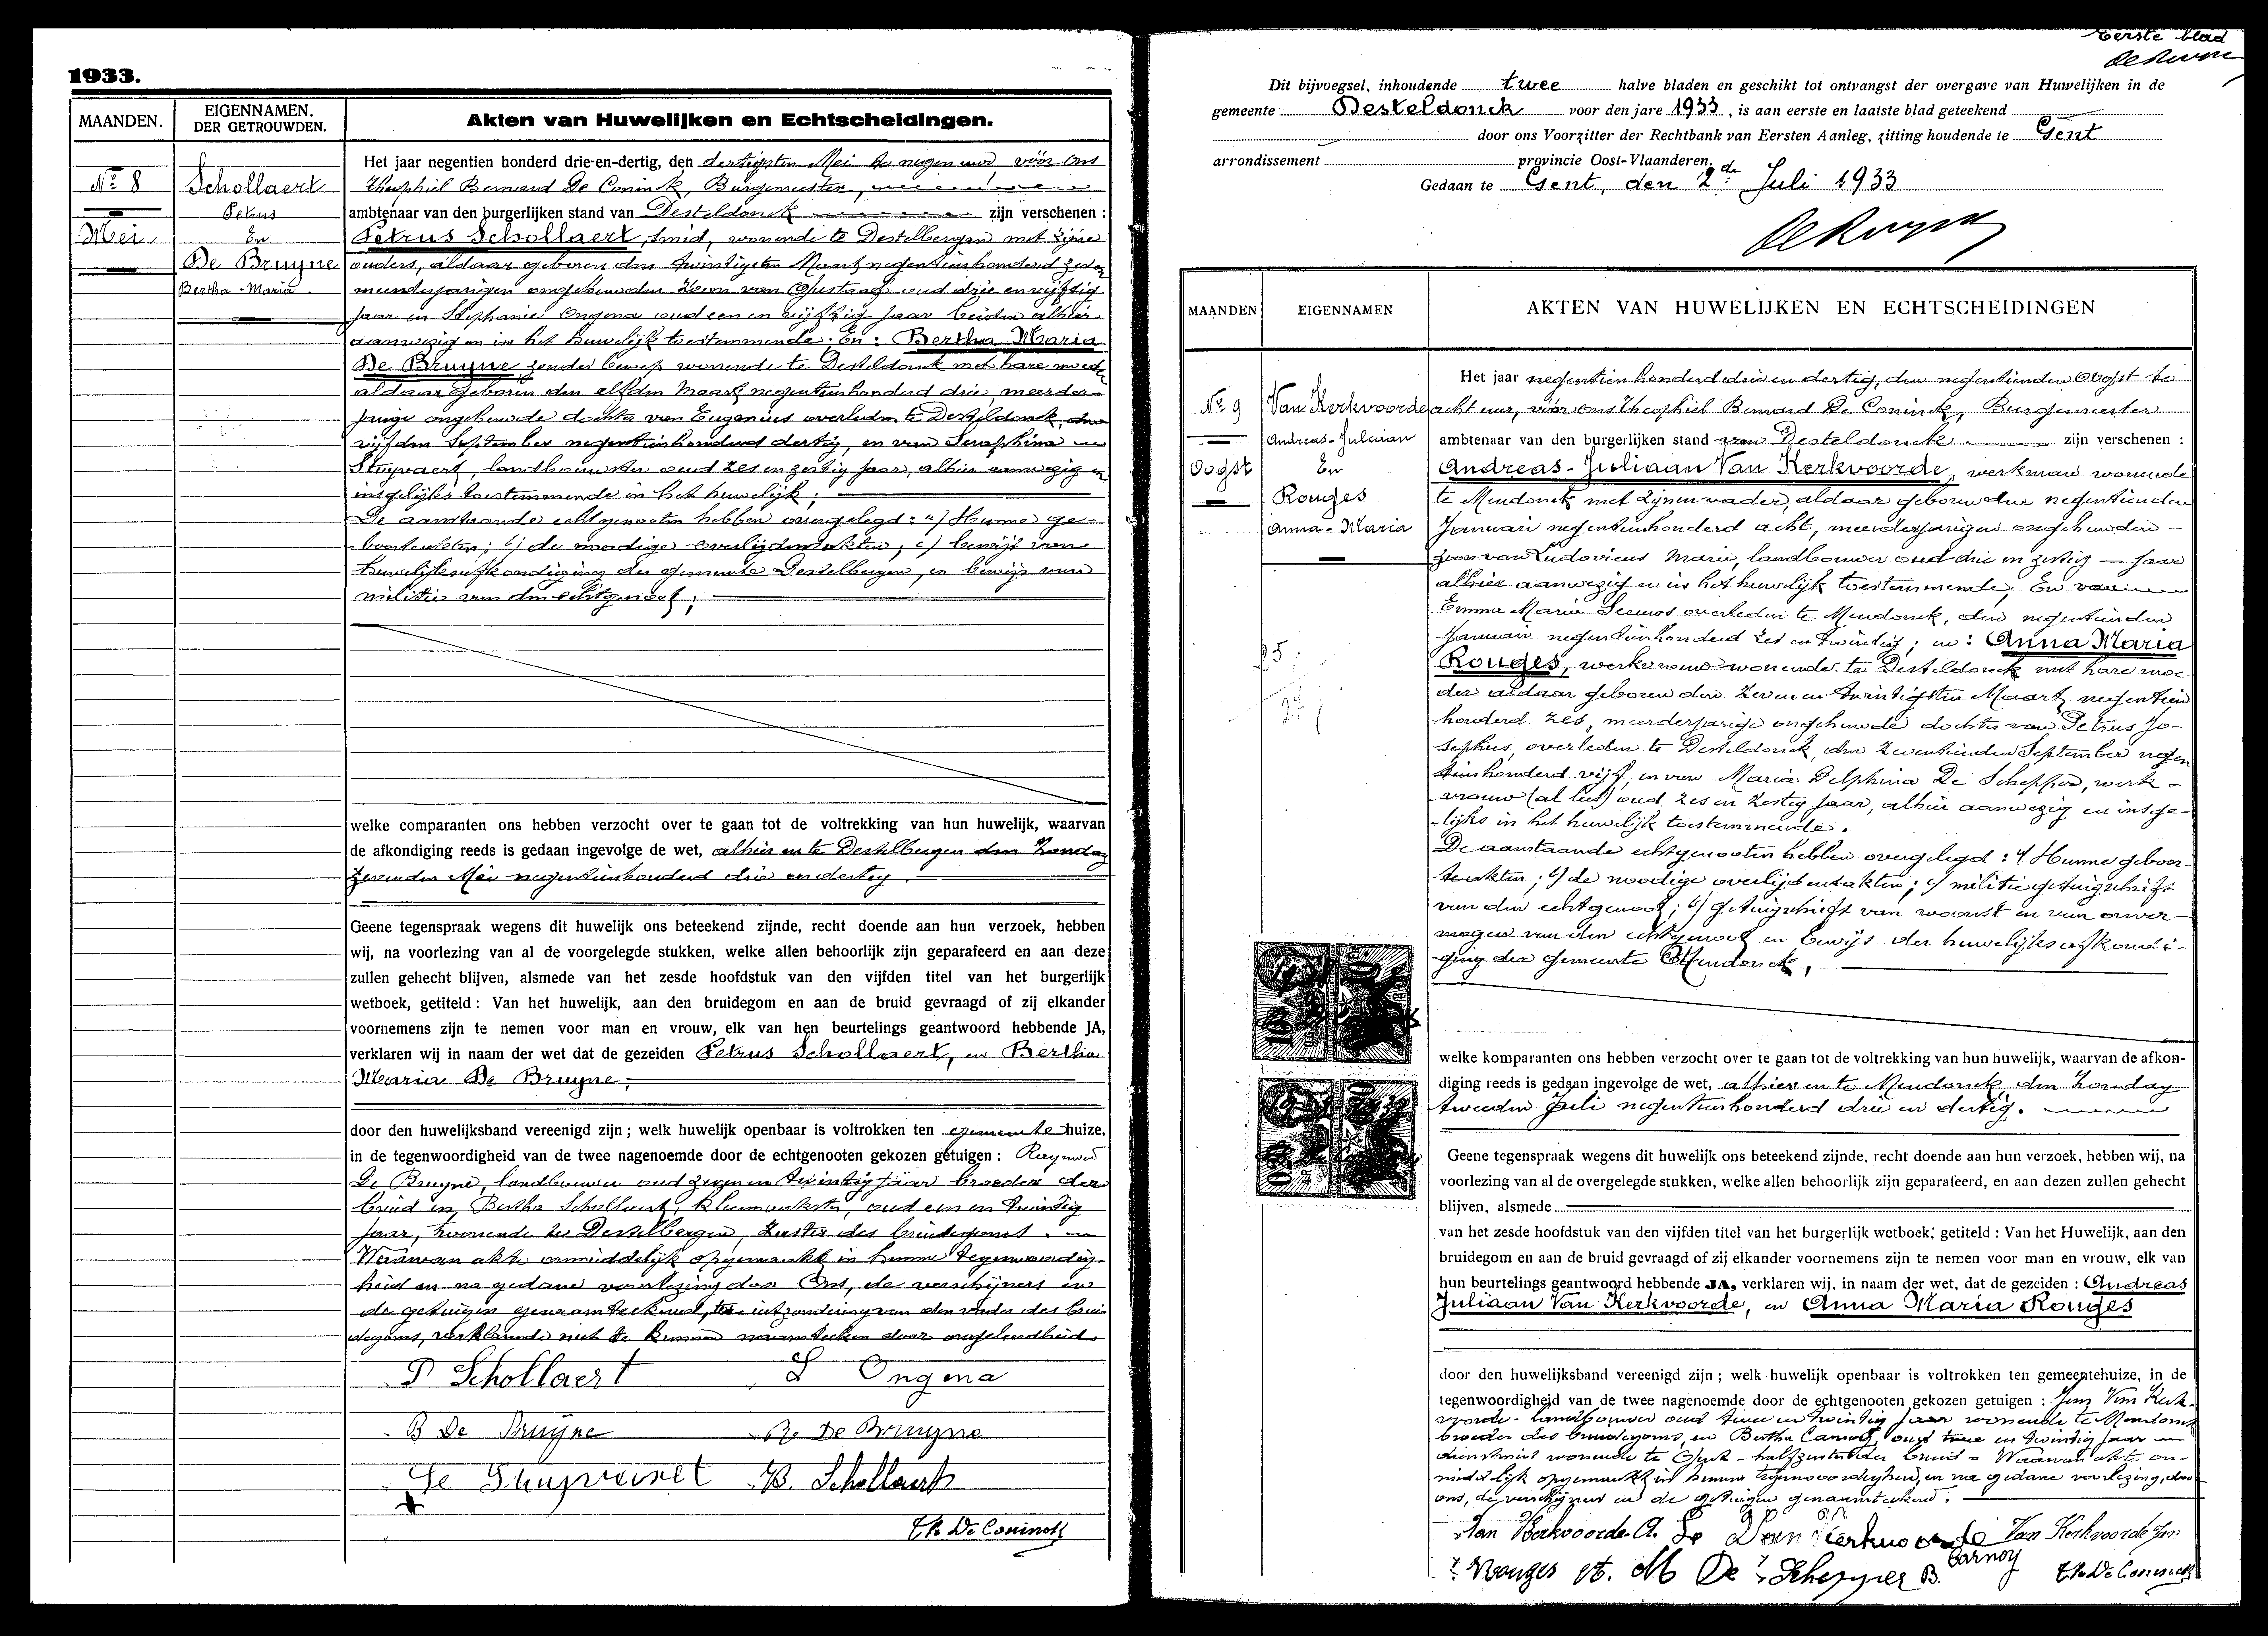 1933.
MAANDEN.
EIGENNAMEN.
DER GETROUWDEN.
Akten van Huwelijken en Echtscheidingen.
Nº 8
Mei.
Schollaert
Petrus
En
De Bruyne
Bertha-Maria
Het jaar negentien honderd drie-en-dertig, den dertigsten Mei te negen uur vóór ons
Theophiel Bernard De Coninck, Burgemeester,
ambtenaar van den burgerlijken stand van Desteldonck zijn verschenen :
Petrus Schollaert, smid, wonende te Destelbergen met zijne
ouders, aldaar geboren den twintigsten Maart negentienhonderd zeven
meerderjarigen ongehuwden zoon van Gustaaf oud drie en vijftig
jaar en Stephanie Ongena oud een en vijftig jaar beiden alhier
aanwezig en in het huwelijk toestemmende. En : Bertha Maria
De Bruyne zonder beroep wonende te Desteldonck met hare moeder
aldaar geboren den elfden Maart negentienhonderd drie, meerder-
jarige ongehuwde dochter van Eugenius overleden te Desteldonck, den
vijfden September negentienhonderd dertig, en van Seraphina
Stuyvaert, landbouwster oud zes en zestig jaar, alhier aanwezig en
insgelijks toestemmende in het huwelijk ;
De aanstaande echtgenooten hebben overgelegd : a) Hunne ge-
boorteakten ; b) de noodige overlijdensakten ; c) bewijs van
huwelijksafkondiging der gemeente Destelbergen, en bewijs van
militie van den echtgenoot ;
welke comparanten ons hebben verzocht over te gaan tot de voltrekking van hun huwelijk, waarvan
de afkondiging reeds is gedaan ingevolge de wet, alhier en te Destelbergen den Zondag
zevenden Mei negentienhonderd drie en dertig.
Geene tegenspraak wegens dit huwelijk ons beteekend zijnde, recht doende aan hun verzoek, hebben
wij, na voorlezing van al de voorgelegde stukken, welke allen behoorlijk zijn geparafeerd en aan deze
zullen gehecht blijven, alsmede van het zesde hoofdstuk van den vijfden titel van het burgerlijk
wetboek, getiteld : Van het huwelijk, aan den bruidegom en aan de bruid gevraagd of zij elkander
voornemens zijn te nemen voor man en vrouw, elk van hen beurtelings geantwoord hebbende JA,
verklaren wij in naam der wet dat de gezeiden Petrus Schollaert, en Bertha
Maria De Bruyne,
door den huwelijksband vereenigd zijn ; welk huwelijk openbaar is voltrokken ten gemeentehuize,
in de tegenwoordigheid van de twee nagenoemde door de echtgenooten gekozen getuigen : Raymond
De Bruyne, landbouwer oud zeven en twintig jaar broeder der
bruid en, Bertha Schollaert, kleermaakster, oud een en twintig
jaar, wonende te Destelbergen, zuster des bruidegoms.
Waarvan akte onmiddelijk opgemaakt in hunne tegenwoordig-
heid en na gedane voorlezing door Ons, de verschijners en
de getuigen genaamteekend, ter uitzondering van den vader des brui
degoms, verklarende niet te kunnen naamteeken door ongeleerdheid.
P Schollaert S Ongena
B De Bruyne R. De Bruyne
Se Stuyvaert B. Schollaert
Th. De Coninck
Eerste blad
Dit bijvoegsel, inhoudende twee halve bladen en geschikt tot ontvangst der overgave van Huwelijken in de
gemeente Desteldonck voor den jare 1933, is aan eerste en laatste blad geteekend
door ons Voorzitter der Rechtbank van Eersten Aanleg, zitting houdende te Gent
arrondissement provincie Oost-Vlaanderen.
Gedaan te Gent, den 2de Juli 1933
MAANDEN
EIGENNAMEN
AKTEN VAN HUWELIJKEN EN ECHTSCHEIDINGEN
Nº 9
Oogst
Van Kerkvoorde
Andreas-Juliaan
En
Rouges
Anna-Maria
Het jaar negentien honderd drie en dertig, den negentienden Oogst te
acht uur, vóór ons Theophiel Bernard De Coninck, Burgemeester
ambtenaar van den burgerlijken stand van Desteldonck zijn verschenen :
Andreas-Juliaan Van Kerkvoorde, werkman wonende
te Mendonck met zijnen vader, aldaar geboren den negentienden
Januari negentienhonderd acht, meerderjarigen ongehuwden
zoon van Ludovicus Marie, landbouwer oud drie en zestig jaar
alhier aanwezig en in het huwelijk toestemmende. En van
Emma Maria Seeuws overleden te Mendonck, den negentienden
Januari negentienhonderd zes en twintig ; en : Anna Maria
Rouges, werkvrouw wonende te Desteldonck met hare moe-
der aldaar geboren den zeven en twintigsten Maart negentien
honderd zes, meerderjarige ongehuwde dochter van Petrus Jo-
sephus, overleden te Desteldonck, den zeventienden September negen
tienhonderd vijf, en van Maria Delphina De Schepper, werk-
vrouw (al lees) oud zes en zestig jaar, alhier aanwezig en insge-
lijks in het huwelijk toestemmende.
De aanstaande echtgenooten hebben overgelegd : a) Hunne geboor-
te akten ; b) de noodige overlijdensakten ; c) militie getuigschrift
van den echtgenoot ; d) getuigschrift van woonst en van onver-
mogen van den echtgenoot en bewijs der huwelijksafkondi-
ging der gemeente Mendonck,
welke komparanten ons hebben verzocht over te gaan tot de voltrekking van hun huwelijk, waarvan de afkon-
diging reeds is gedaan ingevolge de wet, alhier en te Mendonck den Zondag
tweeden Juli negentienhonderd drie en dertig.
Geene tegenspraak wegens dit huwelijk ons beteekend zijnde, recht doende aan hun verzoek, hebben wij, na
voorlezing van al de overgelegde stukken, welke allen behoorlijk zijn geparafeerd, en aan dezen zullen gehecht
blijven, alsmede
van het zesde hoofdstuk van den vijfden titel van het burgerlijk wetboek, getiteld : Van het Huwelijk, aan den
bruidegom en aan de bruid gevraagd of zij elkander voornemens zijn te nemen voor man en vrouw, elk van
hun beurtelings geantwoord hebbende JA, verklaren wij, in naam der wet, dat de gezeiden : Andreas
Juliaan Van Kerkvoorde, en Anna Maria Rouges
door den huwelijksband vereenigd zijn ; welk huwelijk openbaar is voltrokken ten gemeentehuize, in de
tegenwoordigheid van de twee nagenoemde door de echtgenooten gekozen getuigen : Jan Van Kerk-
voorde - landbouwer oud twee en twintig jaar wonende te Mendonck
broeder des bruidegoms, en Bertha Carnoy, oud twee en twintig jaar
dienstmeid wonende te - halfzuster der bruid. Waarvan akte on-
middelijk opgemaakt in hunne tegenwoordigheid, en na gedane voorlezing, door
ons, de verschijners en de getuigen genaamteekend.
Van Kerkvoorde A. Van Kerkvoorde Van Kerkvoorde Jan
Rouges A. M De Schepper B. Carnoy Th. De Coninck